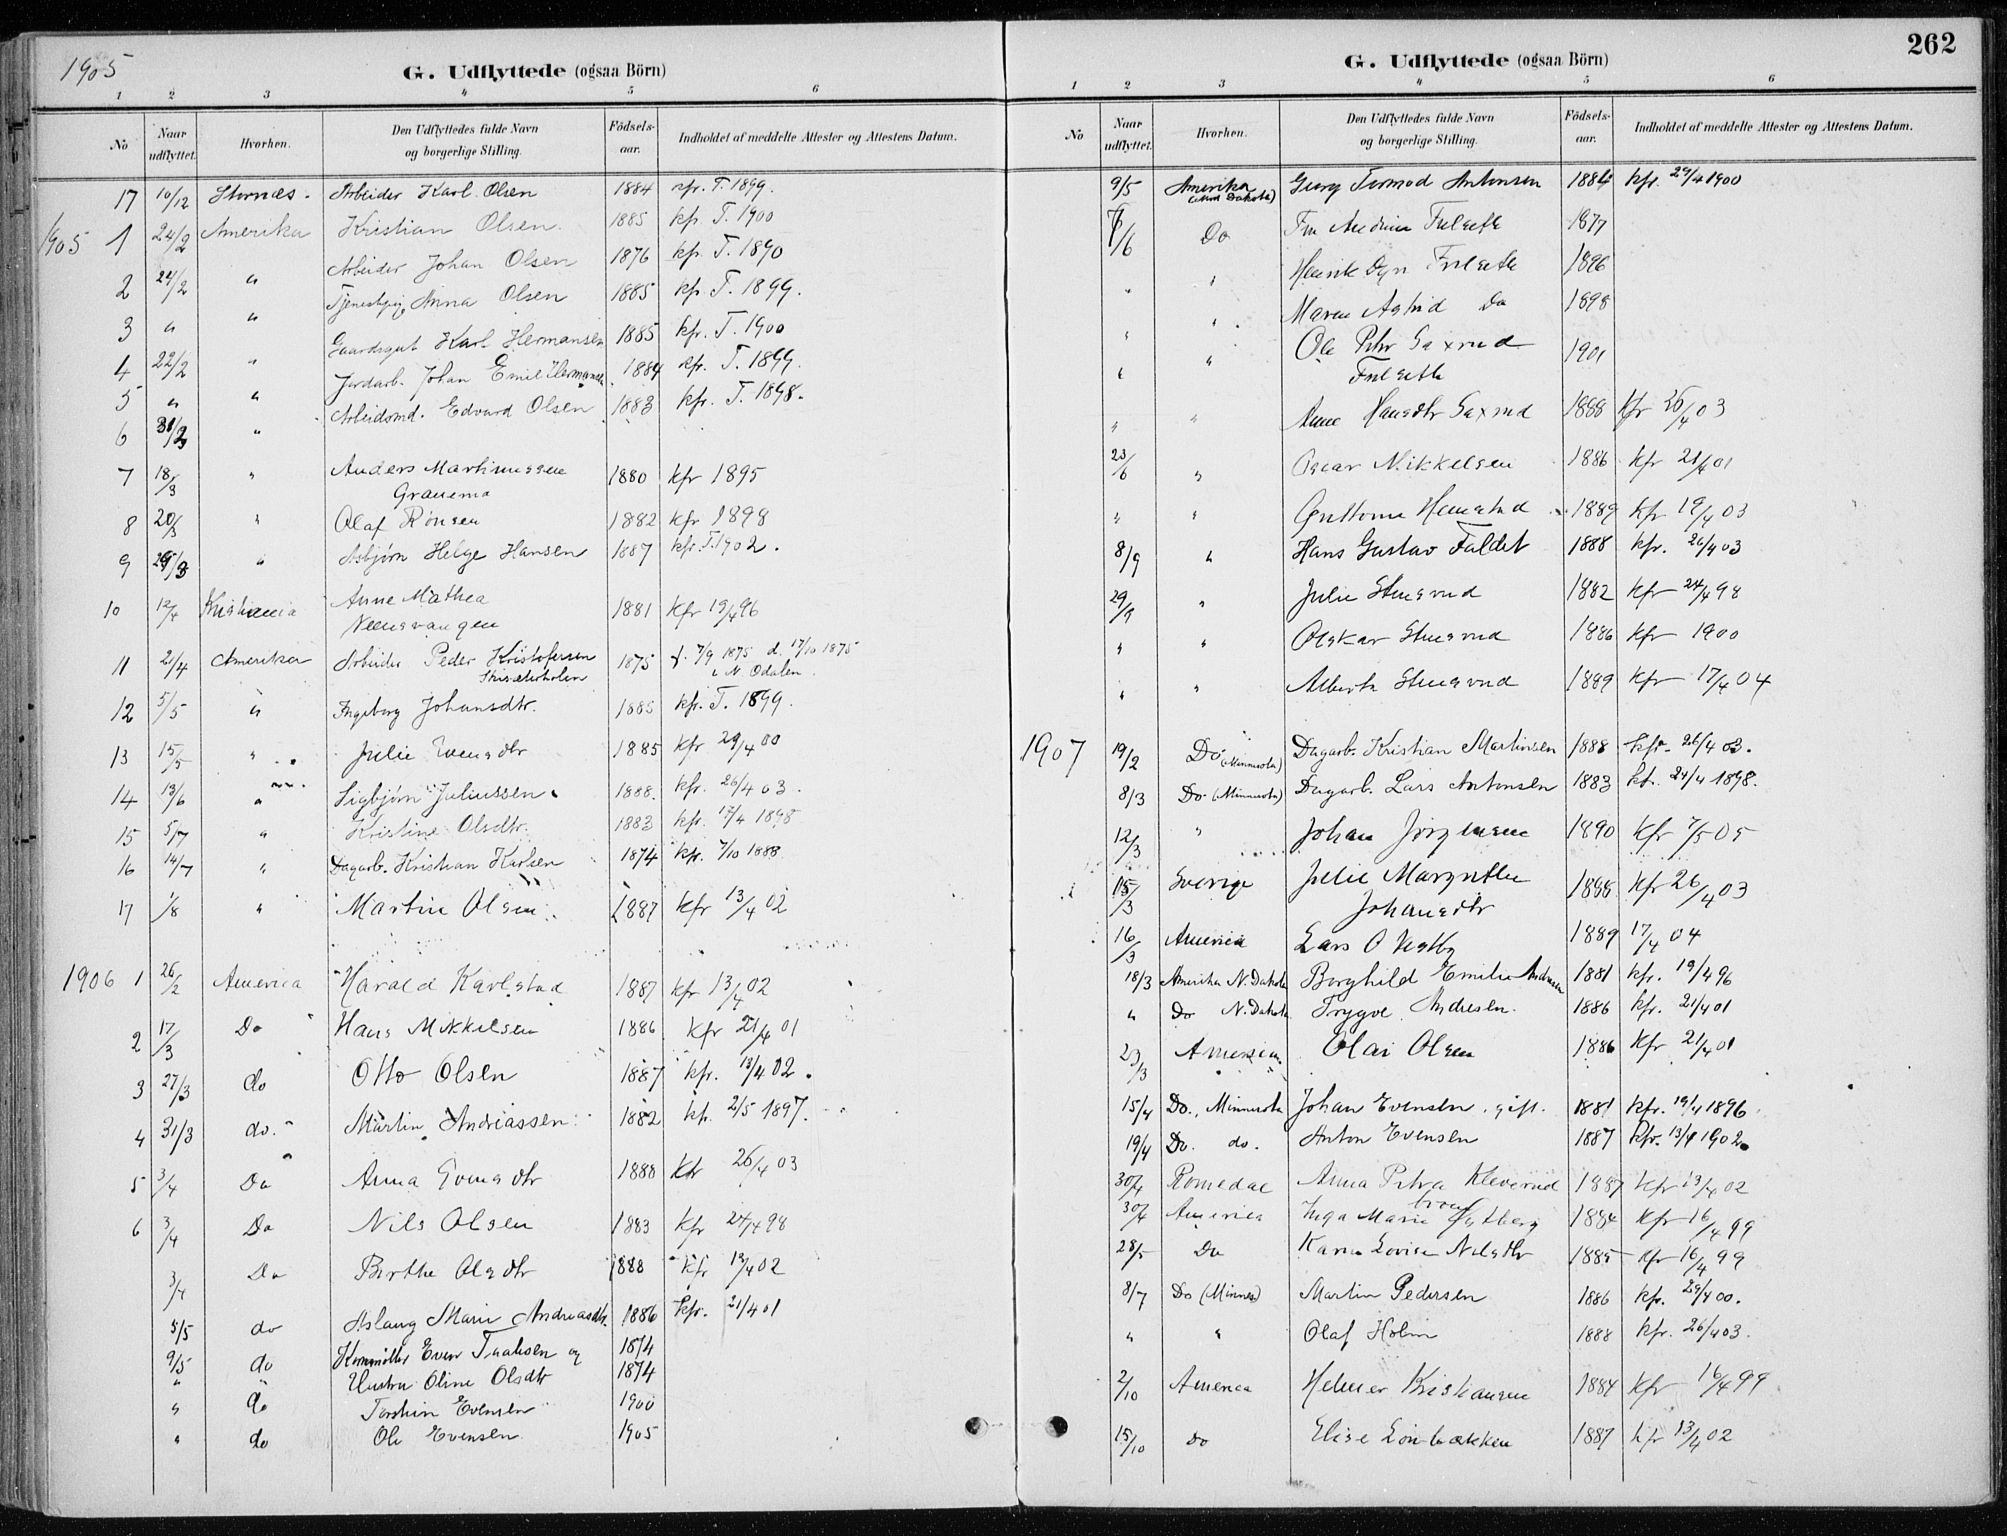 1905
G. Udflyttede (ogsaa Börn)
1 2 3 4 5 6
No Naar udflyttet. Hvorhen. Den Udflyttedes fulde Navn og borgerlige Stilling. Födsels-aar. Indholdet af meddelte Attester og Attestens Datum.
17 10/12 Stornæs. Arbeider Karl Olsen 1884 kfr. T. 1899.
1905 1 24/2 Amerika Kristian Olsen. 1885 kfr. T. 1900
2 24/2 " Arbeider Johan Olsen 1876 kfr. T. 1890
3 " " Tjenestpig. Anna Olsen 1885 kfr. T. 1899.
4 22/2 " Gaardsgut Karl Hermansen 1885 kfr. T. 1900
5 " " Jordarb. Johan Emil Hermansen 1884 kfr. T. 1899.
6 31/3 " Arbeidsmd. Edvard Olsen 1883 kfr. T. 1898.
7 18/3 " Anders Martinussen 1880 kfr 1895
8 20/3 " Olaf Rönsen 1882 kfr 1898
9 25/3 " Asbjørn Helge Hansen 1887 kfr. T. 1902.
10 12/4 Kristiania Anne Mathea 1881 kfr 19/4 96
11 21/4 Amerika Arbeider Peder Kristofersen 1875 f. 7/9 1875 d. 17/10 1875
i N. Odalen.
12 5/5 " Ingeborg Johansdtr. 1885 kfr. T. 1899.
13 15/5 " Julie Evensdtr 1885 kfr 29/4 00
14 13/6 " Sigbjørn Juliussen 1888. kfr. 26/4 03.
15 5/7 " Kristine Olsdtr. 1883 kfr. 17/4 1898
16 14/7 " Dagarb. Kristian Karlsen 1874 kfr. 7/10 1888
17 1/8 " Martin Olsen. 1887 kfr 13/4 02
1906 1 26/2 America Harald Karlstad 1887 kfr 13/4 02
2 17/3 Do Hans Mikkelsen 1886 kfr 21/4 01
3 27/3 do Otto Olsen 1887 kfr. 13/4 02.
4 31/3 do. Martin Andreassen 1882 kfr. 2/5 1897.
5 3/4 Do Anna Evensdtr 1888 kfr 26/4 03
6 3/4 Do Nils Olsen 1883 kfr 24/4 98
3/4 Do Birthe Olsdtr 1888 kfr 13/4 02
5/5 do Aslaug Marie Andreasdtr. 1886 kfr. 21/4 01
9/5 do Even og 1874
" " Hustru Oline Olsdtr 1874
" do Torstein Evensen 1900
" do Ole Evensen 1905
262
G. Udflyttede (ogsaa Börn)
1 2 3 4 5 6
No Naar udflyttet. Hvorhen. Den Udflyttedes fulde Navn og borgerlige Stilling. Födsels-aar. Indholdet af meddelte Attester og Attestens Datum.
9/5 Amerika (Nord Dakota) Georg Tormod Antonsen 1884 kfr. 29/4 1900
1/6 Do Fru Andrine Fulseth 1877
" " Henrik Fulseth 1896
" " Maren Astrid Do 1898
" " Ole Peter Saxrud 1901
Fulseth
" " Anne Hansdtr Saxrud 1888 kfr 26/4 03
23/6 " Oscar Mikkelsen 1886 kfr 21/4 01
" " Guttorm Hemstad 1889 kfr 19/4 03
8/9 " Hans Gustav Faldet 1888 kfr. 26/4 03
29/9 " Julie Stensrud 1882 kfr 24/4 98
" " Olskar Stensrud 1886 kfr 1900
" " Alberth Stensrud 1889 kfr 17/4 04
1907 19/2 Do (Minnesota) Dagarb. Kristian Martinsen 1888 kfr. 26/4 03.
8/3 Do (Minnesota) Dagarb. Lars Antonsen 1883 kf. 24/4 1898.
12/3 " Johan Jørgensen 1890 kfr 7/5 05
15/3 Sverige Julie Margrethe 1888 kfr 26/4 03
Johansdtr
16/3 America Lars O Vestby 1889 17/4 04
18/3 Amerika N. Dakota Borghild Emilie Andresen 1881 kfr. 19/4 96
" Do N. Dakota Trygve Andresen. 1886 kfr. 21/4 01
23/3 America Olai Olsen 1886 kfr 21/4 01
15/4 Do., Minnesota Johan Evensen. gift. 1881 kfr. 19/4 1896.
19/4 Do. do. Anton Evensen 1887 kfr. 13/4 1902.
30/4 Romedal Anna Petra Kleverud 1887 kfr 13/4 02
30/4 America Inga Marie Østberg 1884 kfr 16/4 99
28/5 Do Karen Lovise Nilsdtr 1885 kfr 16/4 99
8/7 Do (Minnes) Martin Pedersen 1886 kfr. 29/4 00.
" " Olaf Holm 1888 kfr. 26/4 03.
2/10 America Helmer Kristiansen 1884 kfr 16/4 99
15/10 Do Elise Lönbækken 1887 kfr 13/4 02